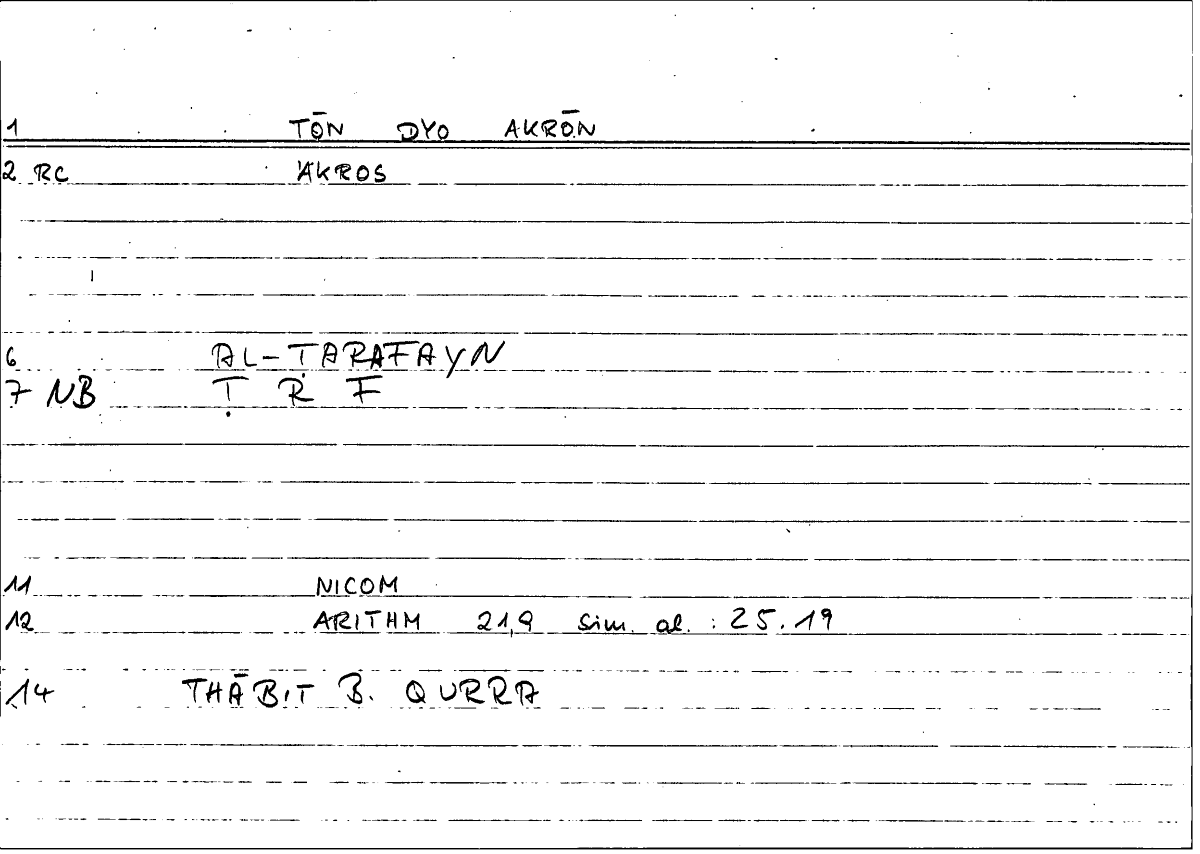 1 TŌN DYO AKRŌN
2 RC 'AKROS
6 AL-ṬARAFAYN
7 NB Ṭ R F
11 NICOM
12 ARITHM 21,9 sim. al. : 25.19
14 THĀBIT B. QURRA